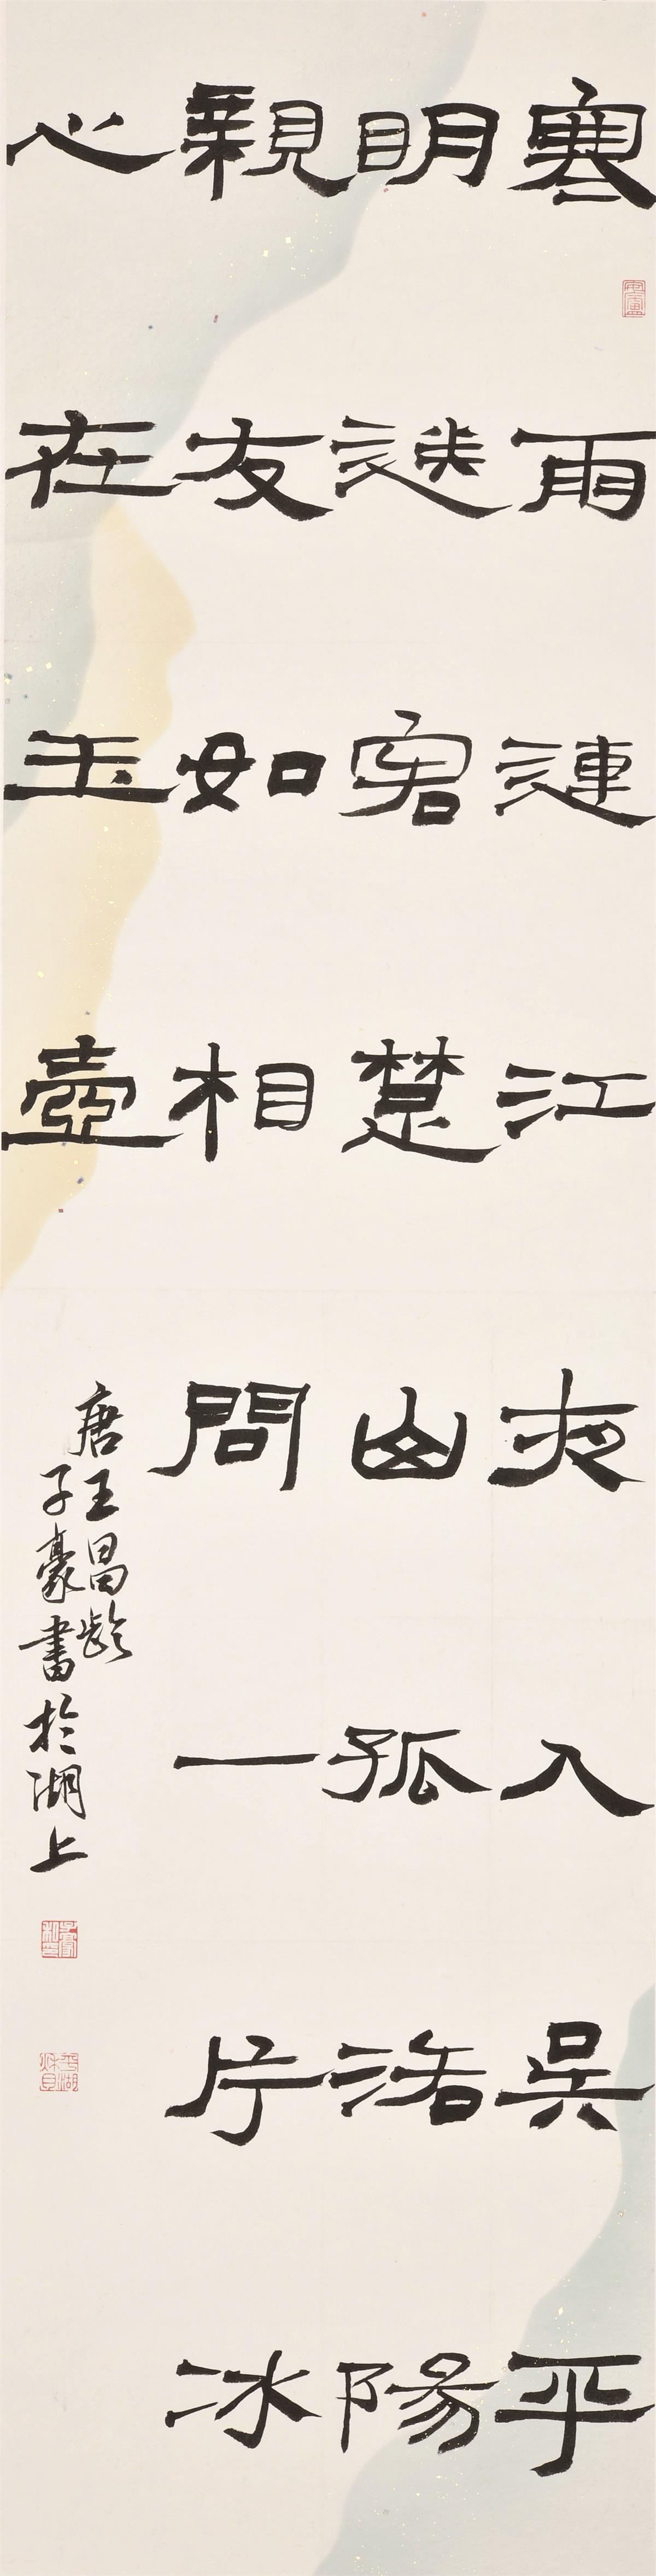 寒雨連江夜入吳平
明送客楚山孤洛陽
親友如相問一片冰
心在玉壺
唐王昌齡
子豪書於湖上